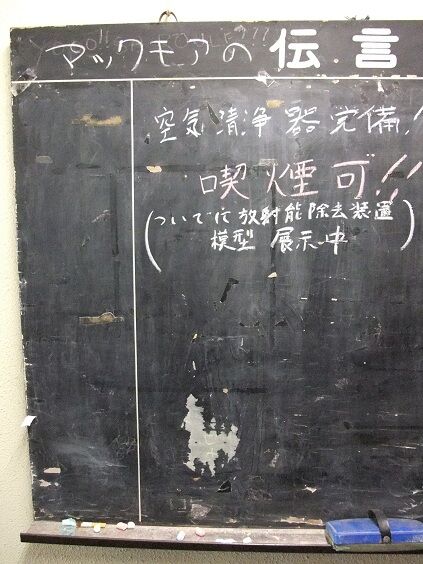 マックモアの伝言
空気清浄器完備!!
喫煙可!!
(ついでに放射能除去装置
模型 展示中)